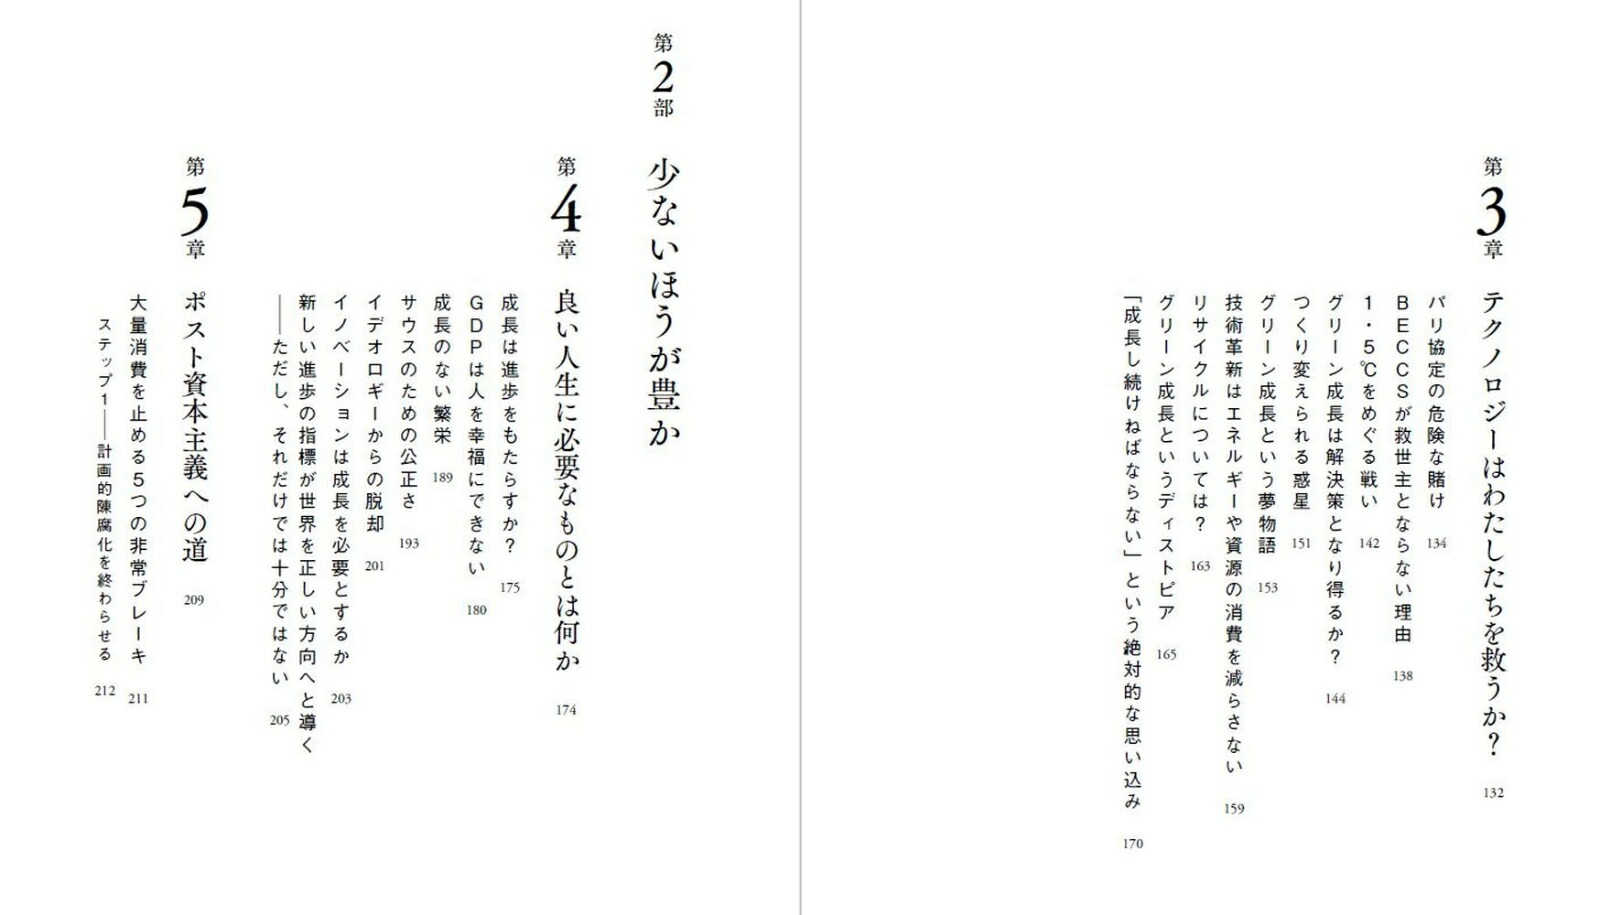 第3章 テクノロジーはわたしたちを救うか? 132
パリ協定の危険な賭け 134
BECCSが救世主とならない理由 138
1・5℃をめぐる戦い 142
グリーン成長は解決策となり得るか? 144
つくり変えられる惑星 151
グリーン成長という夢物語 153
技術革新はエネルギーや資源の消費を減らさない 159
リサイクルについては? 163
グリーン成長というディストピア 165
「成長し続けねばならない」という絶対的な思い込み 170
第2部 少ないほうが豊か
第4章 良い人生に必要なものとは何か 174
成長は進歩をもたらすか? 175
GDPは人を幸福にできない 180
成長のない繁栄 189
サウスのための公正さ 193
イデオロギーからの脱却 201
イノベーションは成長を必要とするか 203
新しい進歩の指標が世界を正しい方向へと導く
——ただし、それだけでは十分ではない 205
第5章 ポスト資本主義への道 209
大量消費を止める5つの非常ブレーキ 211
ステップ1——計画的陳腐化を終わらせる 212